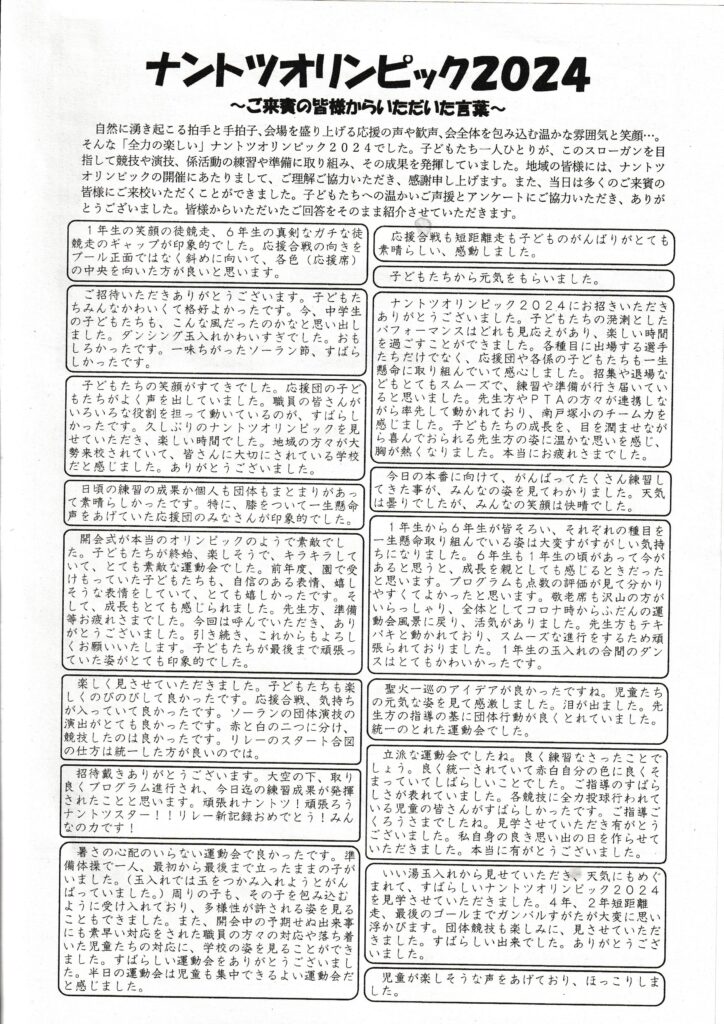 ナントツオリンピック2024
～ご来賓の皆様からいただいた言葉～
自然に湧き起こる拍手と手拍子、会場を盛り上げる応援の声や歓声、会全体を包み込む温かな雰囲気と笑顔…。
そんな「全力の楽しい」ナントツオリンピック2024でした。子どもたち一人ひとりが、このスローガンを目
指して競技や演技、係活動の練習や準備に取り組み、その成果を発揮していました。地域の皆様には、ナントツ
オリンピックの開催にあたりまして、ご理解ご協力いただき、感謝申し上げます。また、当日は多くのご来賓の
皆様にご来校いただくことができました。子どもたちへの温かいご声援とアンケートにご協力いただき、ありが
とうございました。皆様からいただいたご回答をそのまま紹介させていただきます。
1年生の笑顔の徒競走、6年生の真剣なガチな徒
競走のギャップが印象的でした。応援合戦の向きを
プール正面ではなく斜めに向いて、各色（応援席）
の中央を向いた方が良いと思います。
ご招待いただきありがとうございます。子どもた
ちみんなかわいくて格好よかったです。今、中学生
の子どもたちも、こんな風だったのかなと思い出し
ました。ダンシング玉入れかわいすぎでした。おも
しろかったです。一味ちがったソーラン節、すばら
しかったです。
子どもたちの笑顔がすてきでした。応援団の子ど
もたちがよく声を出していました。職員の皆さんが
いろいろな役割を担って動いているのが、すばらし
かったです。久しぶりのナントツオリンピックを見
せていただき、楽しい時間でした。地域の方々が大
勢来校されていて、皆さんに大切にされている学校
だと感じました。ありがとうございました。
日頃の練習の成果か個人も団体もまとまりがあっ
て素晴らしかったです。特に、膝をついて一生懸命
声をあげていた応援団のみなさんが印象的でした。
開会式が本当のオリンピックのようで素敵でし
た。子どもたちが終始、楽しそうで、キラキラして
いて、とても素敵な運動会でした。前年度、園で受
けもっていた子どもたちも、自信のある表情、嬉し
そうな表情をしていて、とても嬉しかったです。そ
して、成長もとても感じられました。先生方、準備
等お疲れさまでした。今回は呼んでいただき、あり
がとうございました。引き続き、これからもよろし
くお願いいたします。子どもたちが最後まで頑張っ
ていた姿がとても印象的でした。
楽しく見させていただきました。子どもたちも楽
しくのびのびして良かったです。応援合戦、気持ち
が入っていて良かったです。ソーランの団体演技の
演出がとても良かったです。赤と白の二つに分け、
競技したのは良かったです。リレーのスタート合図
の仕方は統一した方が良いのでは。
招待戴きありがとうございます。大空の下、取り
良くプログラム進行され、今日迄の練習成果が発揮
されたことと思います。頑張れナントツ！頑張ろう
ナントツスター！！リレー新記録おめでとう！みん
なの力です！
暑さの心配のいらない運動会で良かったです。準
備体操で一人、最初から最後まで立ったままの子が
いました。（玉入れでは玉をつかみ入れようとがん
ばっていました。）周りの子も、その子を包み込む
ように受け入れており、多様性が許される姿を見る
こともできました。また、開会中の予期せぬ出来事
にも素早い対応をされた職員の方々の対応や落ち着
いた児童たちの対応に、学校の姿を見ることができ
ました。すばらしい運動会をありがとうございまし
た。半日の運動会は児童も集中できるよい運動会だ
と感じました。
応援合戦も短距離走も子どものがんばりがとても
素晴らしい、感動しました。
子どもたちから元気をもらいました。
ナントツオリンピック2024にお招きいただき
ありがとうございました。子どもたちの溌溂とした
パフォーマンスはどれも見応えがあり、楽しい時間
を過ごすことができました。各種目に出場する選手
たちだけでなく、応援団や各係の子どもたちも一生
懸命に取り組んでいて感心しました。招集や退場な
どもとてもスムーズで、練習や準備が行き届いてい
ると思いました。先生方やPTAの方々が連携しな
がら率先して動かれており、南戸塚小のチーム力を
感じました。子どもたちの成長を、目を潤ませなが
ら喜んでおられる先生方の姿に温かな思いを感じ、
胸が熱くなりました。本当にお疲れさまでした。
今日の本番に向けて、がんばってたくさん練習し
てきた事が、みんなの姿を見てわかりました。天気
は曇りでしたが、みんなの笑顔は快晴でした。
1年生から6年生が皆そろい、それぞれの種目を
一生懸命取り組んでいる姿は大変すがすがしい気持
ちになりました。6年生も1年生の頃があって今が
あると思うと、成長を親としても感じるときだった
と思います。プログラムも点数の評価が見て分かり
やすくてよかったと思います。敬老席も沢山の方が
いらっしゃり、全体としてコロナ時からふだんの運動
会風景に戻り、活気がありました。先生方もテキ
パキと動かれており、スムーズな進行をするため頑張
られておりました。1年生の玉入れの合間のダン
スはとてもかわいかったです。
聖火一巡のアイデアが良かったですね。児童たち
の元気な姿を見て感激しました。泪が出ました。先生
方の指導の基に団体行動が良くとれていました。
統一のとれた運動会でした。
立派な運動会でしたね。良く練習なさったことで
しょう。良く統一されていて赤白自分の色に良くそ
まっていてしばらしいことでした。ご指導のすばら
しさが表れていました。各競技に全力投球行われて
いる児童の皆さんがすばらしかったです。ご指導ご
くろうさまでしたね。見学させていただき有がとう
ございました。私自身の良き思い出の日を作らせて
いただきました。本当に有がとうございました。
いい湯玉入れから見せていただき、天気にもめぐ
まれて、すばらしいナントツオリンピック2024
を見学させていただきました。4年、2年短距離
走、最後のゴールまでガンバルすがたが大変に思い
浮かびます。団体競技も楽しみに、見させていただき
ました。すばらしい出来でした。ありがとうござ
いました。
児童が楽しそうな声をあげており、ほっこりしま
した。